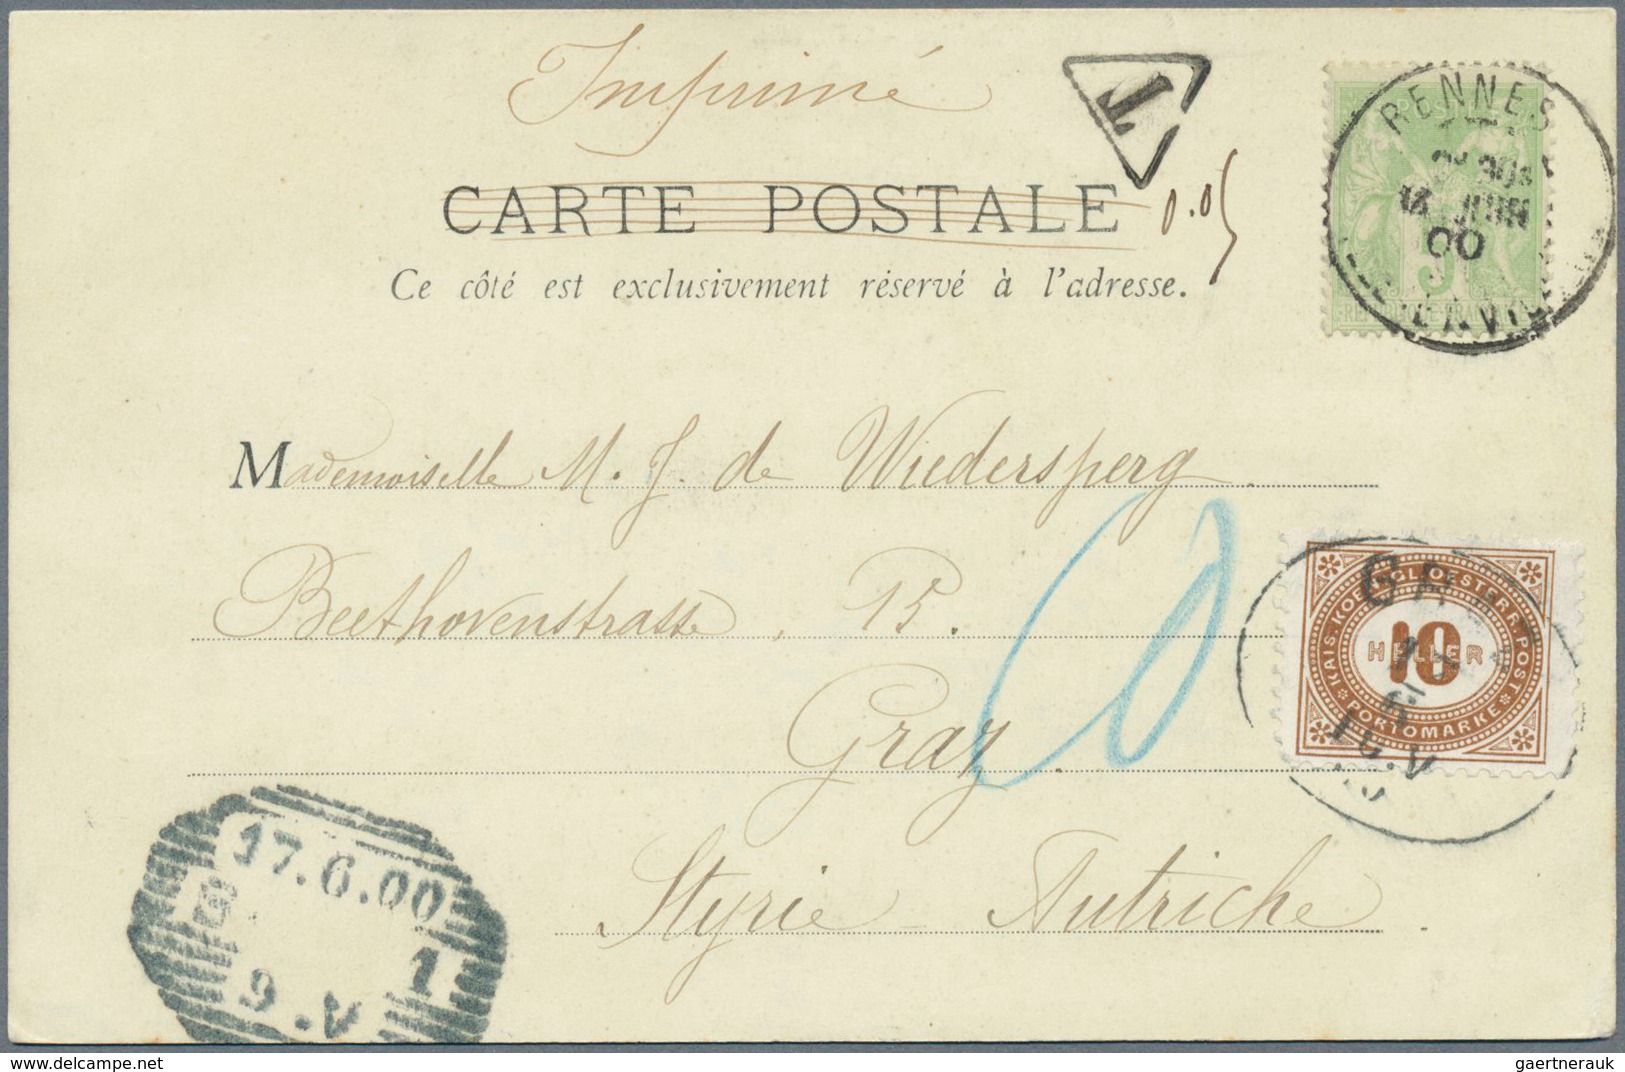 Imprimé
T
CARTE POSTALE
0.05
Ce côté est exclusivement réservé à l'adresse.
RENNES
JUIN
00
5
Mademoiselle M. J. de Wiedersperg
Beethovenstrasse, 15.
Graz
Styrie - Autriche
10
KAIS. KOENIGL. OESTERR. POST
10
HELLER
PORTOMARKE
17.6.00
1
9.V
delcampe.net
gaertnerauk